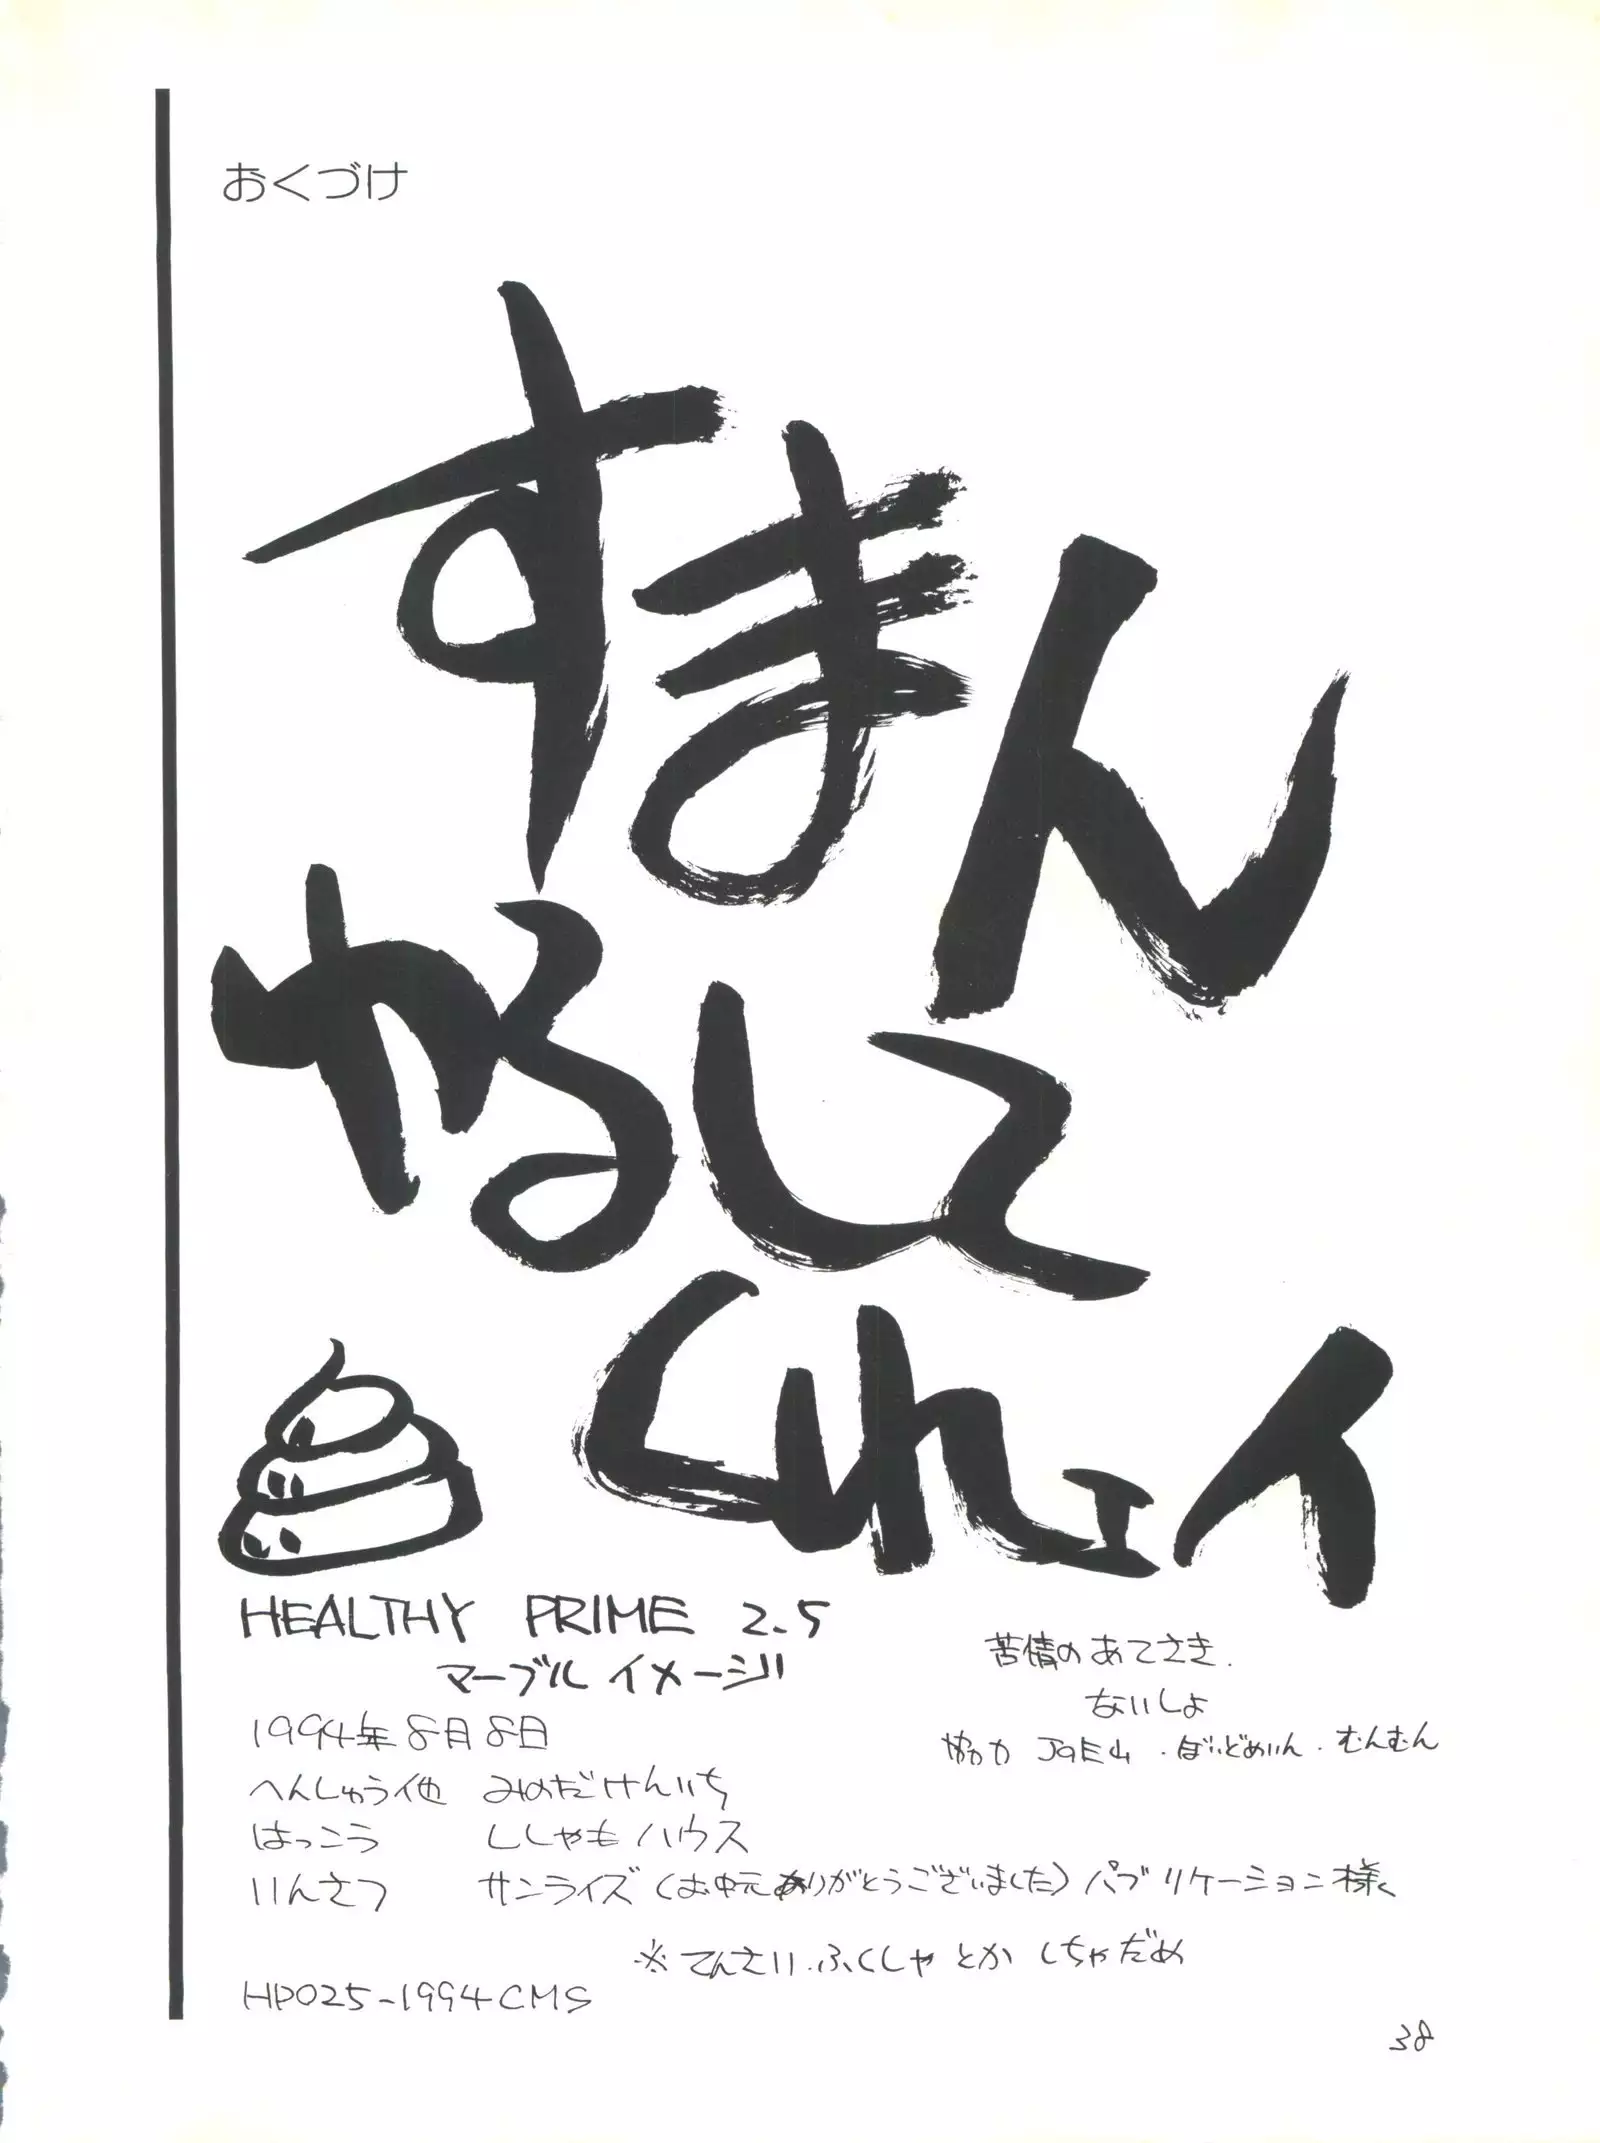 おくづけ
すまん
かるして
くれェイ
HEALTHY PRIME 2.5
マーブルイメージ
1994年8月8日
へんしゅう他 みのだけんいち
はっこう ししゃもハウス
いんさつ サンライズ(お中元ありがとうございました)パブリケーション様
苦情のあてさき.
ないしょ
協力 ・ぼいどめいん・むんむん
※てんさい・ふくしゃとかしちゃだめ
HP025-1994CMS
38